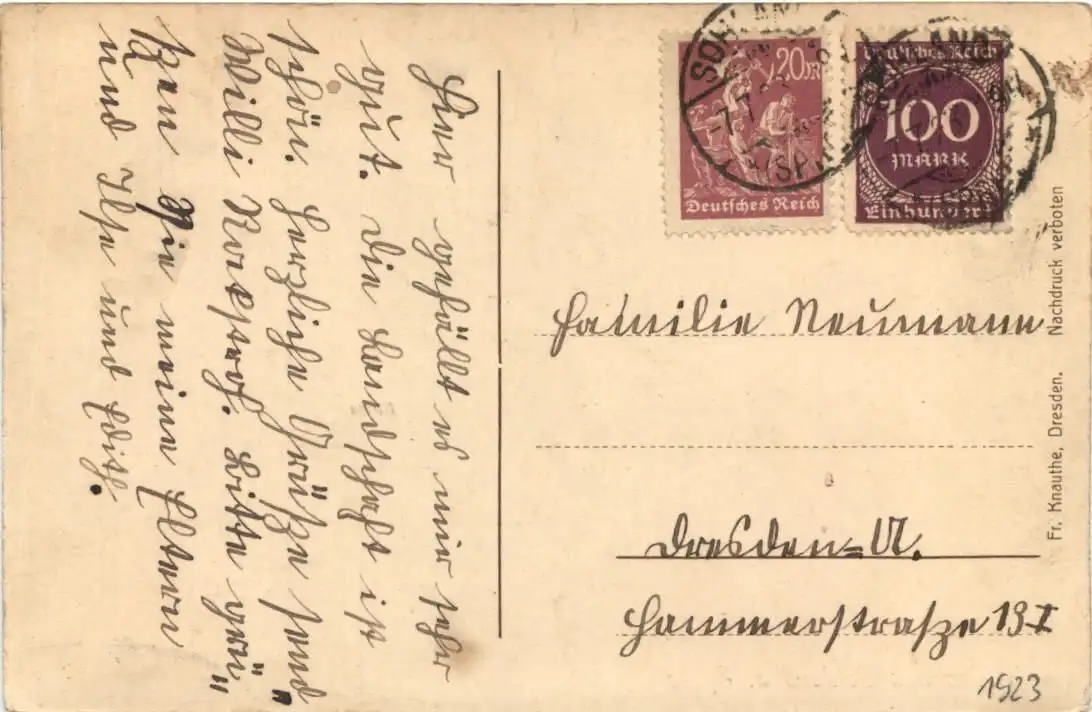 Hier gefällt es mir sehr
gut. Die Landschaft ist
schön. Herzliche Grüße send
Willi Bitte grü
ßen Sie meine Eltern
und Ilse und Edith.
SOHLAND
7.7.
(SPREE)
20M
Deutsches Reich
Deutsches Reich
100
MARK
Einhundert
Familie Neumann
Dresden=A.
Hammerstraße 13 I
1923
Fr. Knauthe, Dresden. Nachdruck verboten